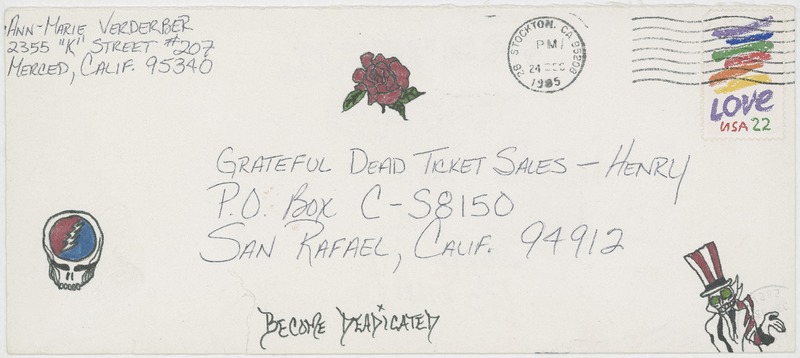 Ann-Marie Verderber
2355 "K" Street #207
Merced, Calif. 95340
STOCKTON, CA 95208
PM
24 DEC
1985
LOVE
USA 22
Grateful Dead Ticket Sales - Henry
P.O. Box C-S8150
San Rafael, Calif. 94912
Become Deadicated